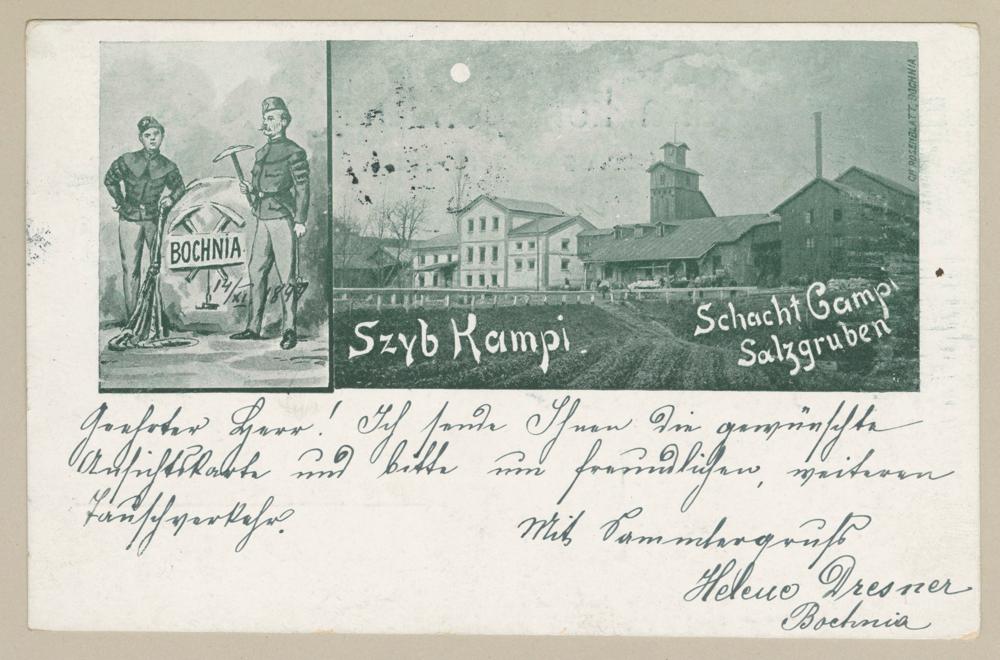 BOCHNIA
14/XI 1899
CH. ROSENBLATT, BOCHNIA.
Szyb Kampi
Schacht Campi
Salzgruben
Geehrter Herr! Ich sende Ihnen die gewünschte
Ansichtskarte und bitte um freundlichen, weiteren
Tauschverkehr.
Mit Sammlergruß
Helene Dresner
Bochnia